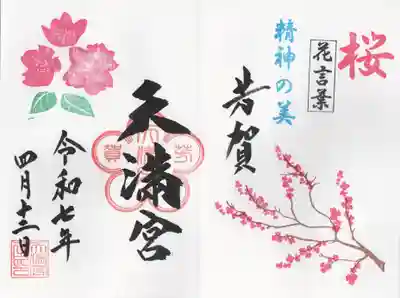 桜
花言葉
精神の美
芳賀
天満宮
令和七年
四月十三日